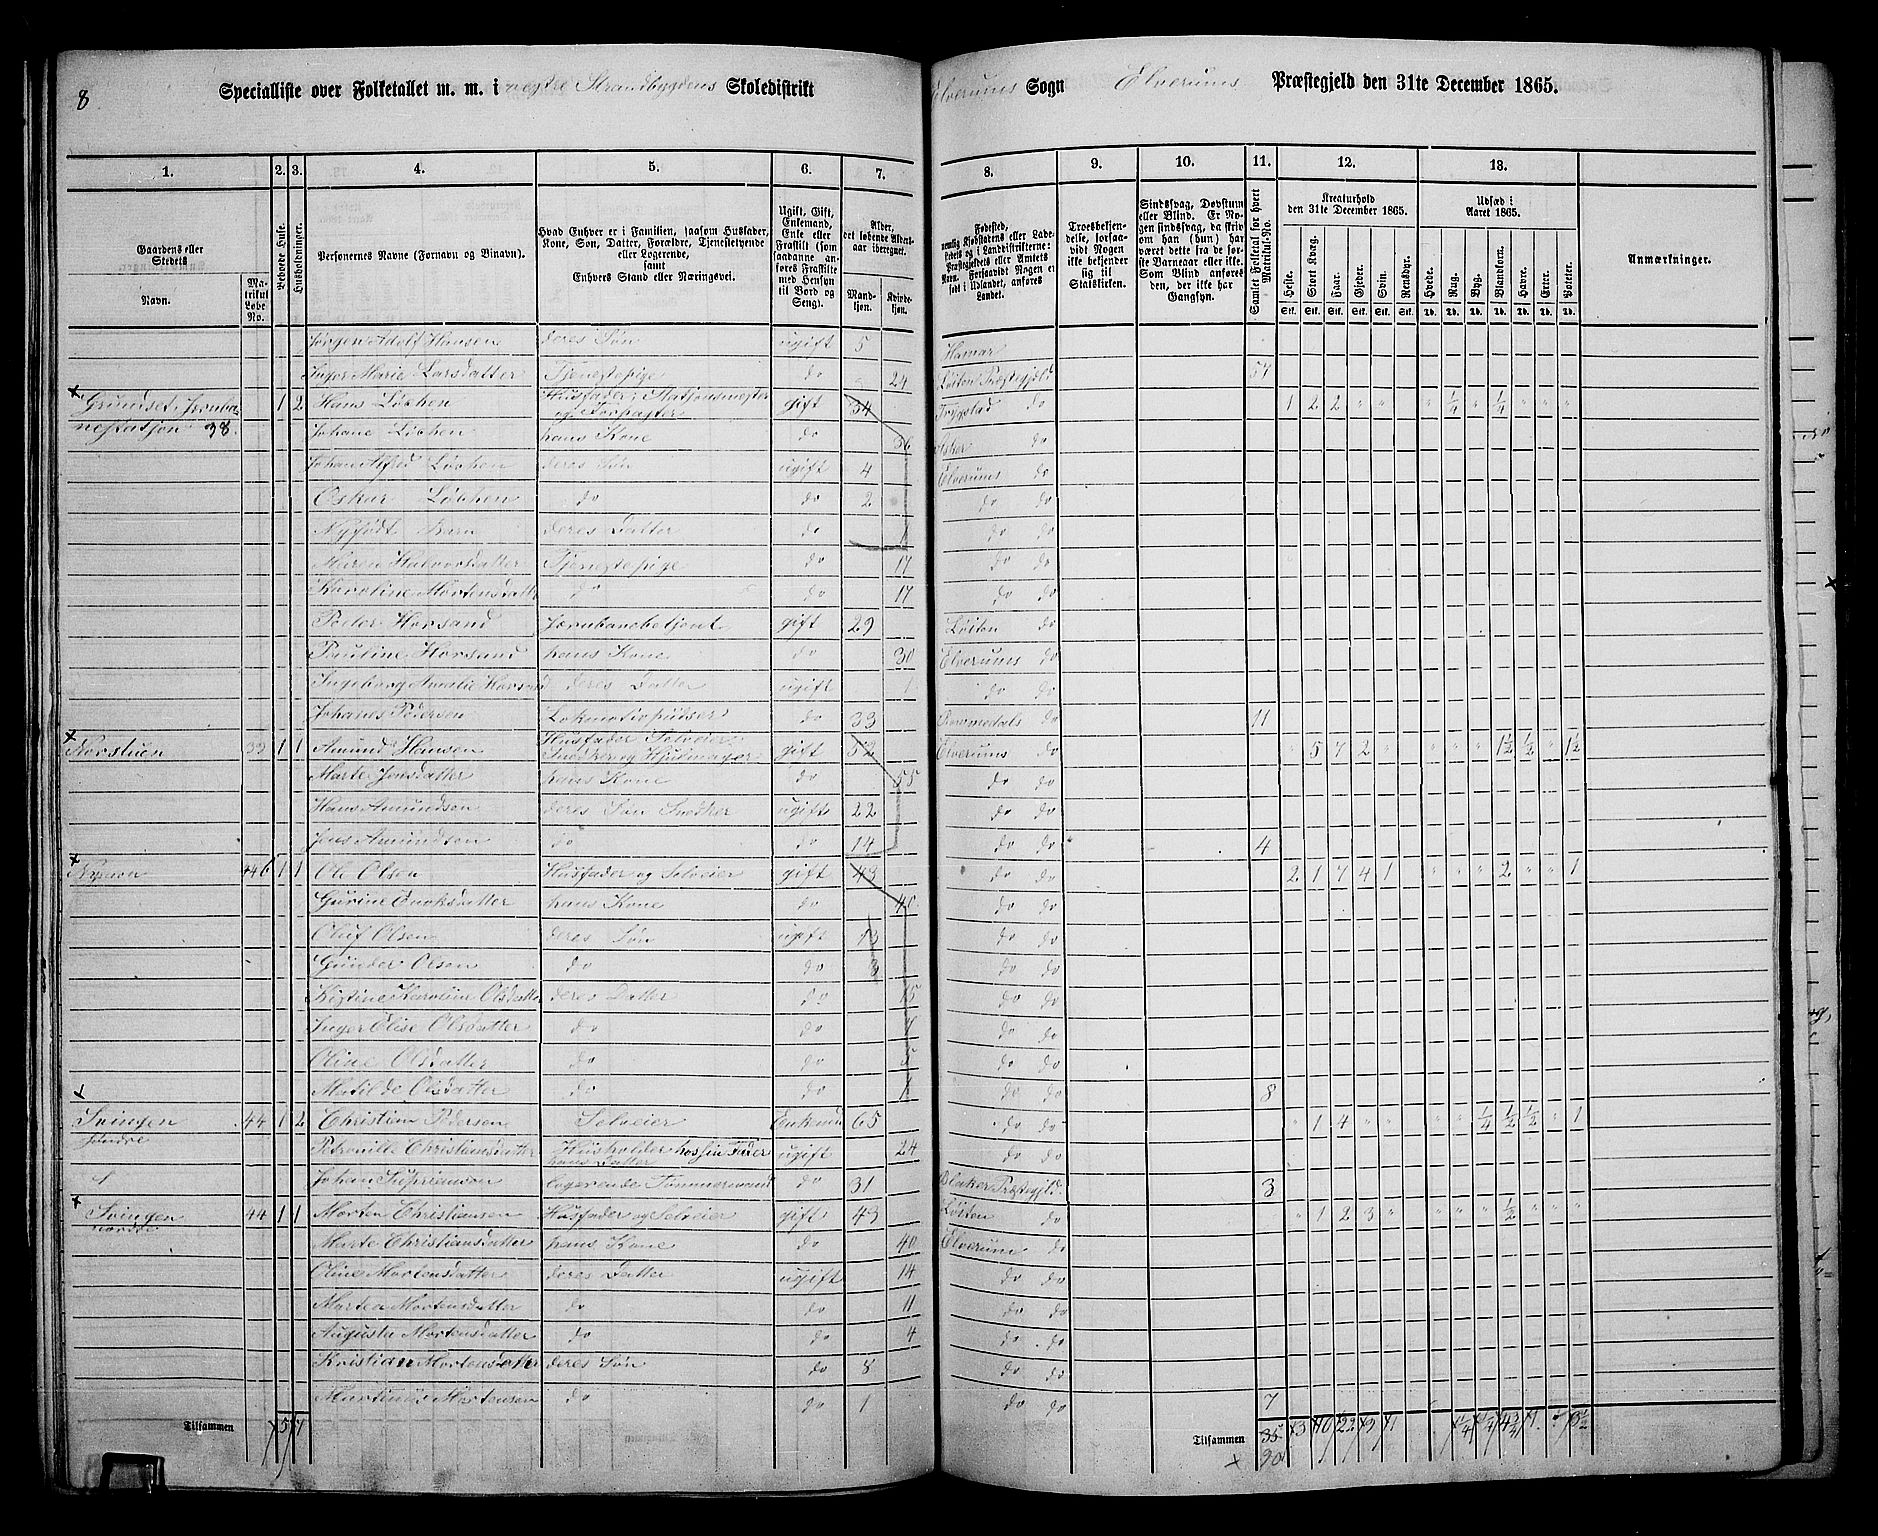 8
Specialliste over Folketallet m. m. i vestre Strandbygdens Skoledistrikt Elverums Sogn Elverums Præstegjeld den 31te December 1865.
1. 2. 3. 4. 5. 6. 7. 8. 9. 10. 11. 12. 13.
Gaardens eller Stedets
Navn.
Matrikul Løbe-No.
Beboede Huse.
Husholdninger.
Personernes Navne (Fornavn og Binavn).
Hvad Enhver er i Familien, saasom Husfader, Kone, Søn, Datter, Forældre, Tjenestetyende eller Logerende, samt Enhvers Stand eller Næringsvei.
Ugift, Gift, Enkemand, Enke eller Fraskilt (som saadanne anføres Fraskilte med Hensyn til Bord og Seng).
Alder, det løbende Aldersaar iberegnet.
Mandkjøn.
Kvindekjøn.
Troesbekjendelse, forsaavidt Nogen ikke bekjender sig til Statskirken.
Sindssvag, Døvstum eller Blind. Er Nogen sindssvag, da skriv om han (hun) har været dette fra de første Barneaar eller ikke. Som Blind anføres den, der ikke har Gangsyn.
Samlet Folketal for hvert Matrikul-No.
Kreaturhold den 31te December 1865.
Heste. Stort Kvæg. Faar. Gjeder. Svin. Rensdyr.
Udsæd i Aaret 1865.
Hvede. Rug. Byg. Blandkorn. Havre. Erter. Poteter.
Anmærkninger.
Jørgen Adolf Hansen deres Søn ugift 5 Hamar
Inger Marie Larsdatter Tjenestepige do 24 Løiten Præstegjeld 57
Grundset Jernba- 1 2 Hans Løchen Husfader, Statsionsmester gift 34 Trygstad do 1 2 2 " " " " 1/4 " 1/4 " " "
nestatsjon 38. Johane Løchen hans Kone do 36 Asker do
Johan Alfred Løchen deres Søn ugift 4 Elverums do
Oskar Løchen do do 2 do do
Nyfødt Barn deres Datter do 1 do do
Maren Halvorsdatter Tjenestepige do 17 do do
Karoline Mortensdatter do do 17 do do
Peder Horsand Jernbanebetjent gift 29 Løiten do
Pauline Horsand hans Kone do 30 Elverums do
Ingeborg Amalie Horsand deres Datter ugift 1 do do
Johanes Pedersen do 33 Romedals do 11
Korstuen 33 1 1 Amund Hansen gift 52 Elverums do " 5 7 2 " " " " " 1 1/2 1/2 " 1 1/2
Marte Jensdatter hans Kone do 55 do do
Hans Amundsen deres Søn Snedker ugift 22 do do
Jens Amundsen do do 14 do do 4
446 1 1 Ole Olsen Husfader og Selveier gift 43 do do 2 1 7 4 1 " " " 2 " " 1
Gurine Enoksdatter hans Kone do 40 do do
Oluf Olsen deres Søn ugift 13 do do
Gunder Olsen do do 8 do do
Kristine Karoline Olsdatter deres Datter do 15 do do
Inger Elise Olsdatter do do 7 do do
Oline Olsdatter do do 5 do do
Matilde Olsdatter do do 1 do do 8
Svingen 44 1 2 Christian Pedersen Selveier Enkemd 65 do do " 1 4 " " " " " 1/4 1/2 1/2 " 1
søndre Petronille Christiansdatter Husholder hos sin Fader ugift 24 do do
hans Datter
Logerende Tømmermand do 31 Blaker Præstegjld. 3
Svingen 44 1 1 Morten Christiansen Husfader og Selveier gift 43 Løiten do " 1 2 3 " " " " " 1/2 " " "
nordre Marte Christiansdatter hans Kone do 40 Elverum do
Oline Mortensdatter deres Datter ugift 14 do do
Martea Mortensdatter do do 11 do do
Augusta Mortensdatter do do 4 do do
Kristian Mortensdatter deres Søn do 8 do do
Martinius Mortensen do do 1 do do 7
Tilsammen 5 7 Tilsammen